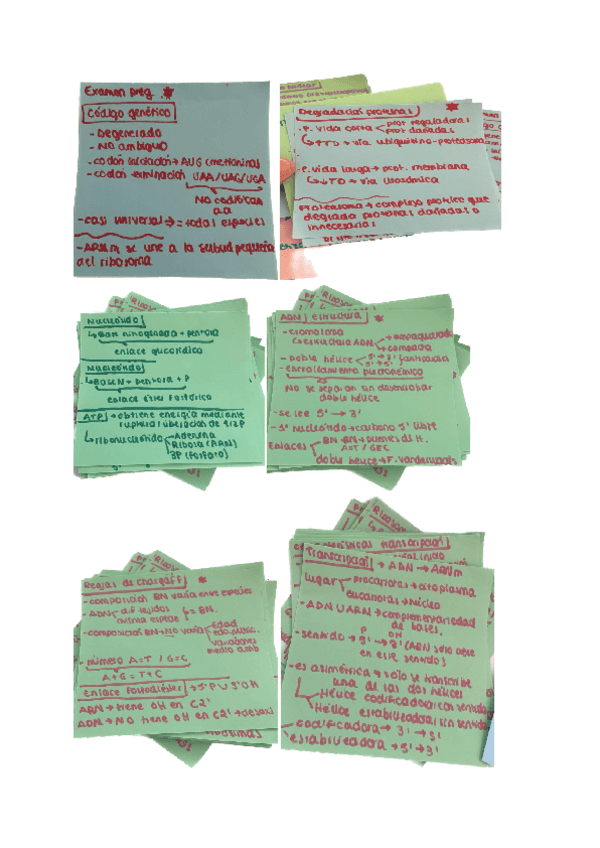 Examen preg. *
Código genético
- Degenerado
- NO ambiguo
- codón iniciación → AUG (metionina)
- codón terminación UAA/UAG/UGA
NO codifican
aa
- casi universal → = todas especies
- ARNm se une a la subud pequeña
del ribosoma
Degradación proteínas *
- P. vida corta
prot reguladoras
prot dañadas
↳ TD → vía ubiquitina-proteasoma
- P. vida larga → prot. membrana
↳ TD → vía lisosómica
Proteasoma → complejo proteico que
degrada proteínas dañadas o
innecesarias
Nucleósido
↳ Base nitrogenada + pentosa
enlace glucosídico
Nucleótido
↳ Base N + pentosa + P
enlace éster fosfórico
ATP → obtiene energía mediante
ruptura/liberación de 1/2P
↳ ribonucleótido
Adenina
Ribosa (ARN)
3P (Fósforo)
ADN | estructura *
- cromatina
(estructura ADN
→ empaquetada
→ compacta
- Doble hélice
5' → 3'
3' → 5'
- enrollamiento plectonémico
NO se separan sin desenrollar
doble hélice
- se lee 5' → 3'
- 5' Nucleótido → carbono 5' libre
Enlaces
BN - BN → puentes de H.
A=T / G≡C
doble hélice → F. vanderwaals
Reglas de Chargaff *
- composición BN varía entre especies
- ADN
≠ tejidos
misma especie
= BN.
- composición BN → NO varía
Edad
edo. nutric.
variaciones
medio amb
- número A=T / G=C
A+G = T+C
Enlace fosfodiéster → 5'P U 3'OH
ARN → tiene OH en C2'
ADN → NO tiene OH en C2' → desoxi
Transcripción → ADN → ARNm
lugar
procariotas → citoplasma
eucariotas → núcleo
- ADN U ARN → complementariedad
de bases.
P OH
- sentido → 5' → 3' (ARN solo crece
en ese sentido)
- es asimétrica → solo se transcribe
una de las dos hélices
Hélice codificadora (con sentido)
Hélice estabilizadora (sin sentido)
codificadora → 3' → 5'
estabilizadora → 5' → 3'